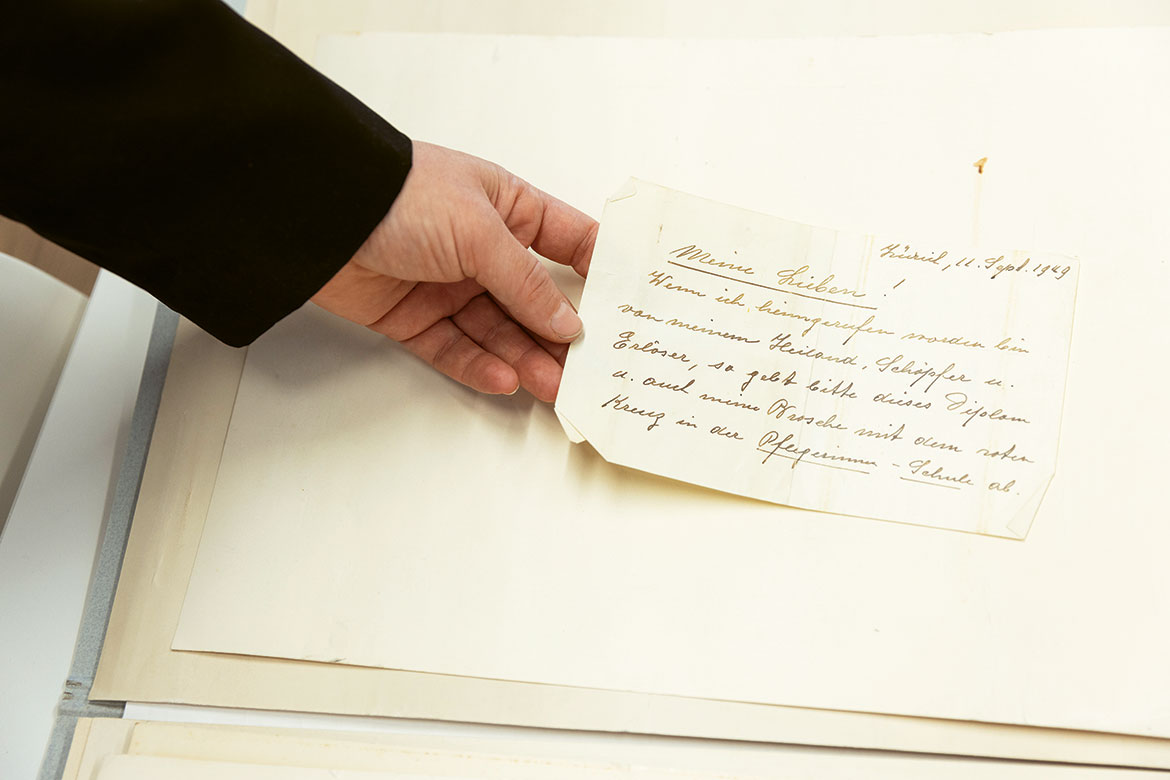 Zürich, 11. Sept. 1949
Meine Lieben!
Wenn ich heimgerufen worden bin
von meinem Heiland, Schöpfer u.
Erlöser, so gebt bitte dieses Diplom
u. auch meine Brosche mit dem roten
Kreuz in der Pflegerinnen-Schule ab.